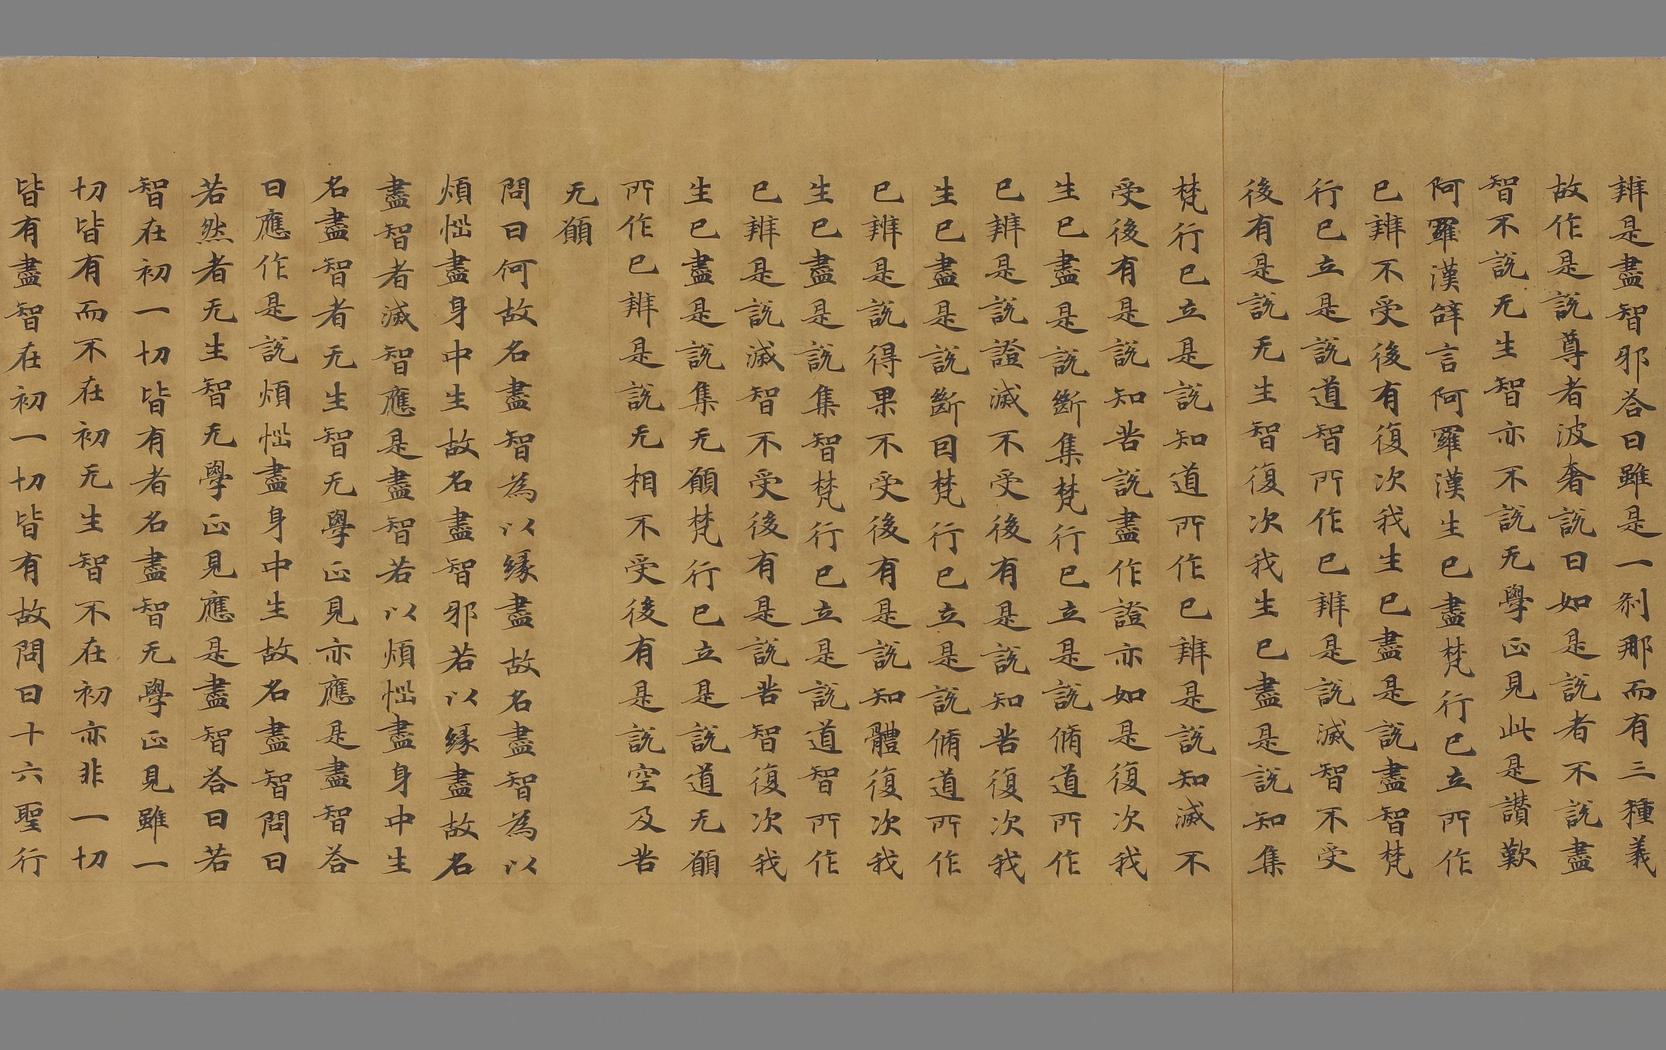 辨是盡智邪荅曰雖是一剎那而有三種義
故作是說尊者波奢說曰如是說者不說盡
智不說无生智亦不說无學正見此是讚歎
阿羅漢辞言阿羅漢生已盡梵行已立所作
已辨不受後有復次我生已盡是說盡智梵
行已立是說道智所作已辨是說滅智不受
後有是說无生智復次我生已盡是說知集
梵行已立是說知道所作已辨是說知滅不
受後有是說知苦說盡作證亦如是復次我
生已盡是說斷集梵行已立是說脩道所作
已辨是說證滅不受後有是說知苦復次我
生已盡是說斷因梵行已立是說脩道所作
已辨是說得果不受後有是說知體復次我
生已盡是說集智梵行已立是說道智所作
已辨是說滅智不受後有是說苦智復次我
生已盡是說集无願梵行已立是說道无願
所作已辨是說无相不受後有是說空及苦
无願
問曰何故名盡智為以緣盡故名盡智為以
煩惱盡身中生故名盡智邪若以緣盡故名
盡智者滅智應是盡智若以煩惱盡身中生
名盡智者无生智无學正見亦應是盡智荅
曰應作是說煩惱盡身中生故名盡智問曰
若然者无生智无學正見應是盡智荅曰若
智在初一切皆有者名盡智无學正見雖一
切皆有而不在初无生智不在初亦非一切
皆有盡智在初一切皆有故問曰十六聖行